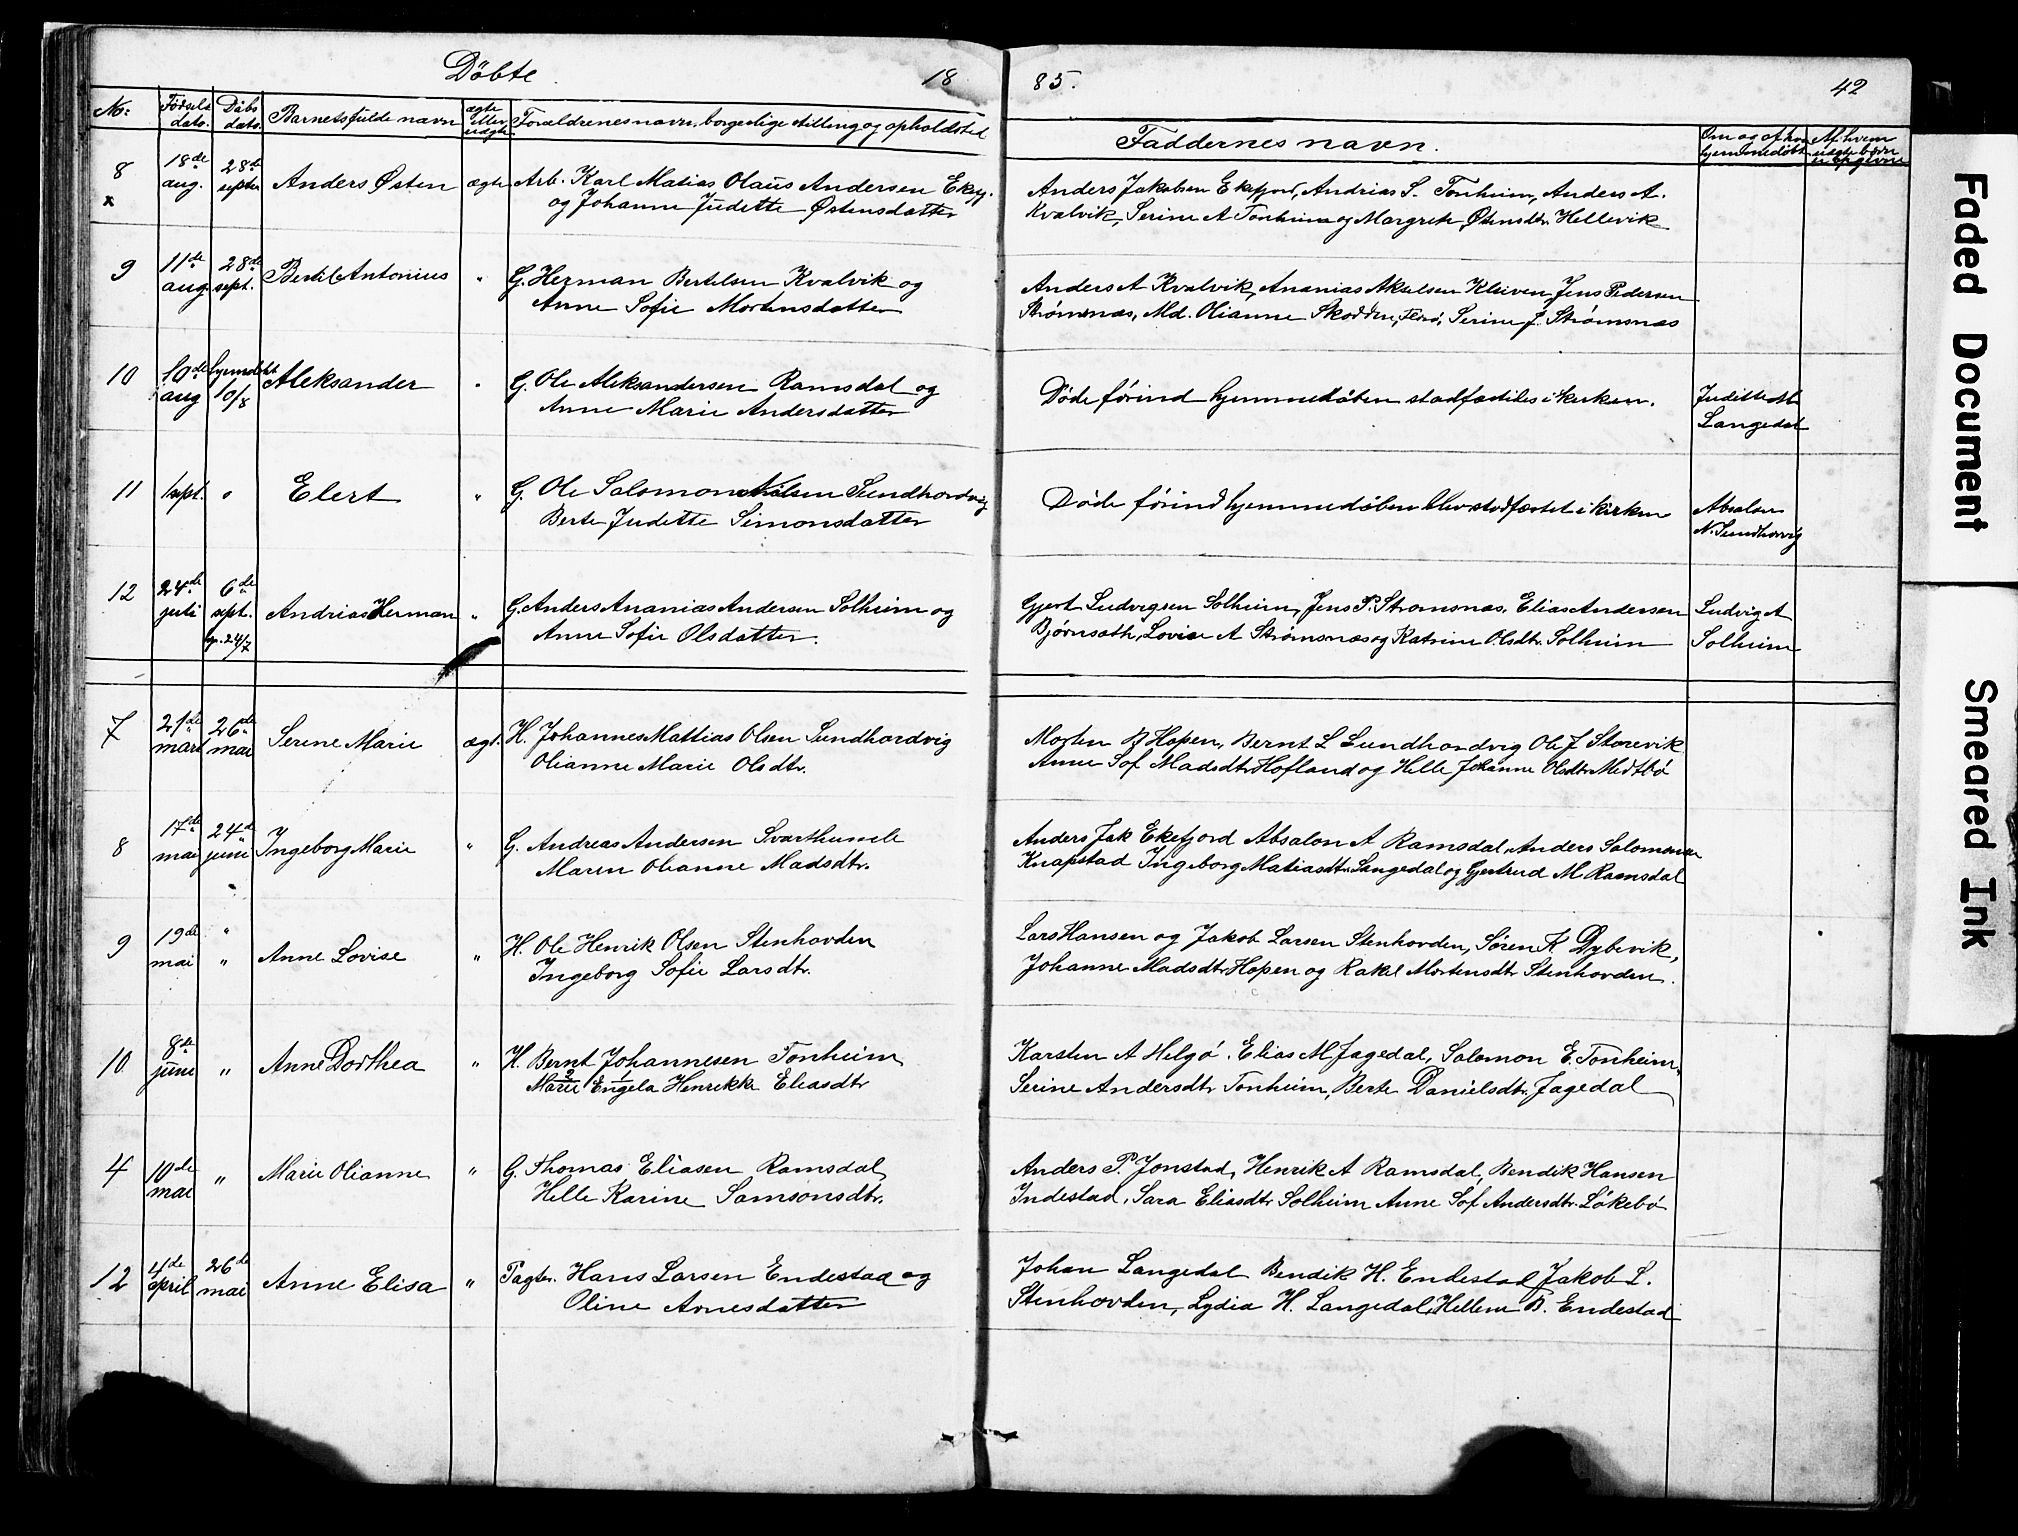 Döbte
18
85.
42
No:
Födsels
dato.
Dåbs
dato
Barnets fulde navn
ægte
eller
uægte
Forældrenes navn, borgerlige stilling og opholdsted
Faddernes navn.
Om og af hv.
hjemmedöbt
Af hvem
uægte börn
er opgivne
8
x
18de
aug.
28de
septer
Anders Østen
ægte
Arb. Karl Matias Olaus Andersen Ekefj.
og Johanne Judette Østensdatter
Anders Jakobsen Ekefjord, Andrias S. Tonheim, Anders A.
Kvalvik, Serine A Tonheim og Margrete Østensdtr. Hellevik
9
11de
aug
28de
sept.
Bertil Antonius
"
G. Herman Bertelsen Kvalvik og
Anne Sofie Mortensdatter
Anders A Kvalvik, Ananias Akselsen Kleiven, Jens Pedersen
Strömsnæs, Md. Olianne Skodden, Florö, Serine J. Strömsnæs
10
10de
aug
hjemdöbt
10/8
Aleksander
"
G. Ole Aleksandersen Ramsdal og
Anne Marie Andersdatter
Döde förind hjemmedåben stadfæstedes i kirken.
Juditte
Langedal
11
1 sept.
"
Elert
"
G. Ole Salomon Nilsen Sundhordvig
Berte Judette Simonsdatter
Döde förind hjemmedåben blev stadfæstet i kirken
Absalon
N. Sundhorvig
12
24de
juli
6de
sept.
hj. 24/7
Andrias Herman
"
G. Anders Ananias Andersen Solheim og
Anne Sofie Olsdatter.
Gjert Ludvigsen Solheim, Jens P. Strömsnæs, Elias Andersen
Björnsæth, Lovise A Strömsnæs og Katrine Olsdtr. Solheim
Ludvig A
Solheim
7
21de
mars
26de
mai
Serine Marie
ægt.
H. Johannes Mattias Olsen Sundhordvig
Olianne Marie Olsdtr.
Morten B Hopen, Bernt L Sundhordvig Ole J Storevik
Anne Sof Madsdtr Hofland og Helle Johanne Olsdtr Medtbö
8
17de
mai
24de
juni
Ingeborg Marie
"
G. Andreas Andersen Svarthumle
Maren Olianne Madsdtr.
Anders Jak Ekefjord Absalon A Ramsdal, Anders Salomonsen
Knapstad Ingeborg Matiasdtr Langedal og Gjertrud M Ramsdal
9
19de
mai
"
"
Anne Lovise
"
H. Ole Henrik Olsen Stenhovden
Ingeborg Sofie Larsdtr.
Lars Hansen og Jakob Larsen Stenhovden, Sören K Dybevik,
Johanne Madsdtr Hopen og Rakel Mortensdtr Stenhovden.
10
8de
juni
"
Anne Dorthea
"
H. Bernt Johannesen Tonheim
Marie Engela Henrikke Eliasdtr
Karsten A Helgö, Elias M Fagedal, Salomon E. Tonheim,
Serine Andersdtr Tonheim, Berte Danielsdtr. Fagedal
4
10de
mai
"
Marie Olianne
"
G. Thomas Eliasen Ramsdal
Helle Karine Samsonsdtr.
Anders P. Jonstad, Henrik A Ramsdal, Bendik Hansen
Indestad, Sara Eliasdtr Solheim Anne Sof Andersdtr. Lökebö
12
4de
april
26de
mai
Anne Elisa
"
Pagter. Hans Larsen Endestad og
Oline Arnesdatter
Johan Langedal Bendik H. Endestad Jakob L.
Stenhovden, Lydia H. Langedal, Hellene B. Endestad
Faded Document
Smeared Ink